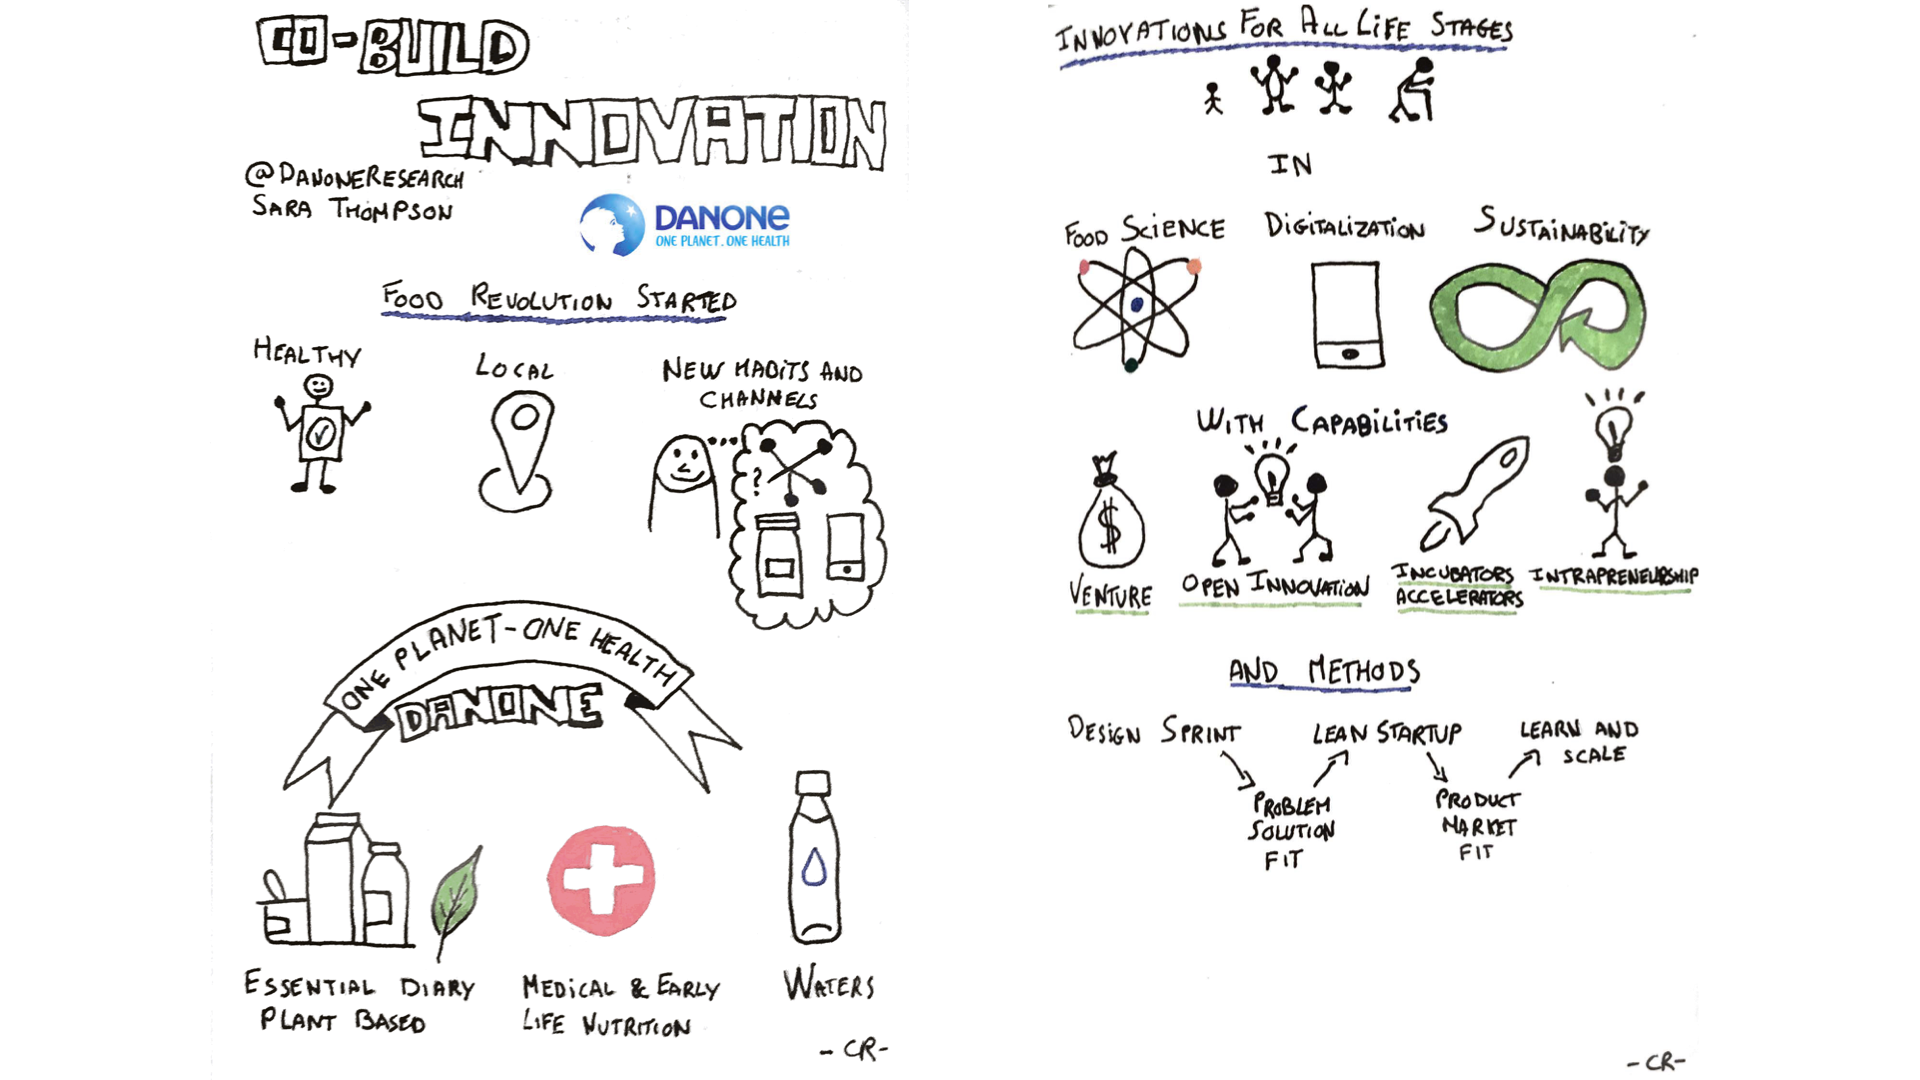 CO-BUILD
INNOVATION
@DANONERESEARCH
SARA THOMPSON
DANONE
ONE PLANET. ONE HEALTH
FOOD REVOLUTION STARTED
HEALTHY
LOCAL
NEW HABITS AND
CHANNELS
?
ONE PLANET-ONE HEALTH
DANONE
ESSENTIAL DIARY
PLANT BASED
MEDICAL & EARLY
LIFE NUTRITION
WATERS
-CR-
INNOVATIONS FOR ALL LIFE STAGES
IN
FOOD SCIENCE
DIGITALIZATION
SUSTAINABILITY
WITH CAPABILITIES
$
VENTURE
OPEN INNOVATION
INCUBATORS
ACCELERATORS
INTRAPRENEURSHIP
AND METHODS
DESIGN SPRINT
PROBLEM
SOLUTION
FIT
LEAN STARTUP
PRODUCT
MARKET
FIT
LEARN AND
SCALE
-CR-